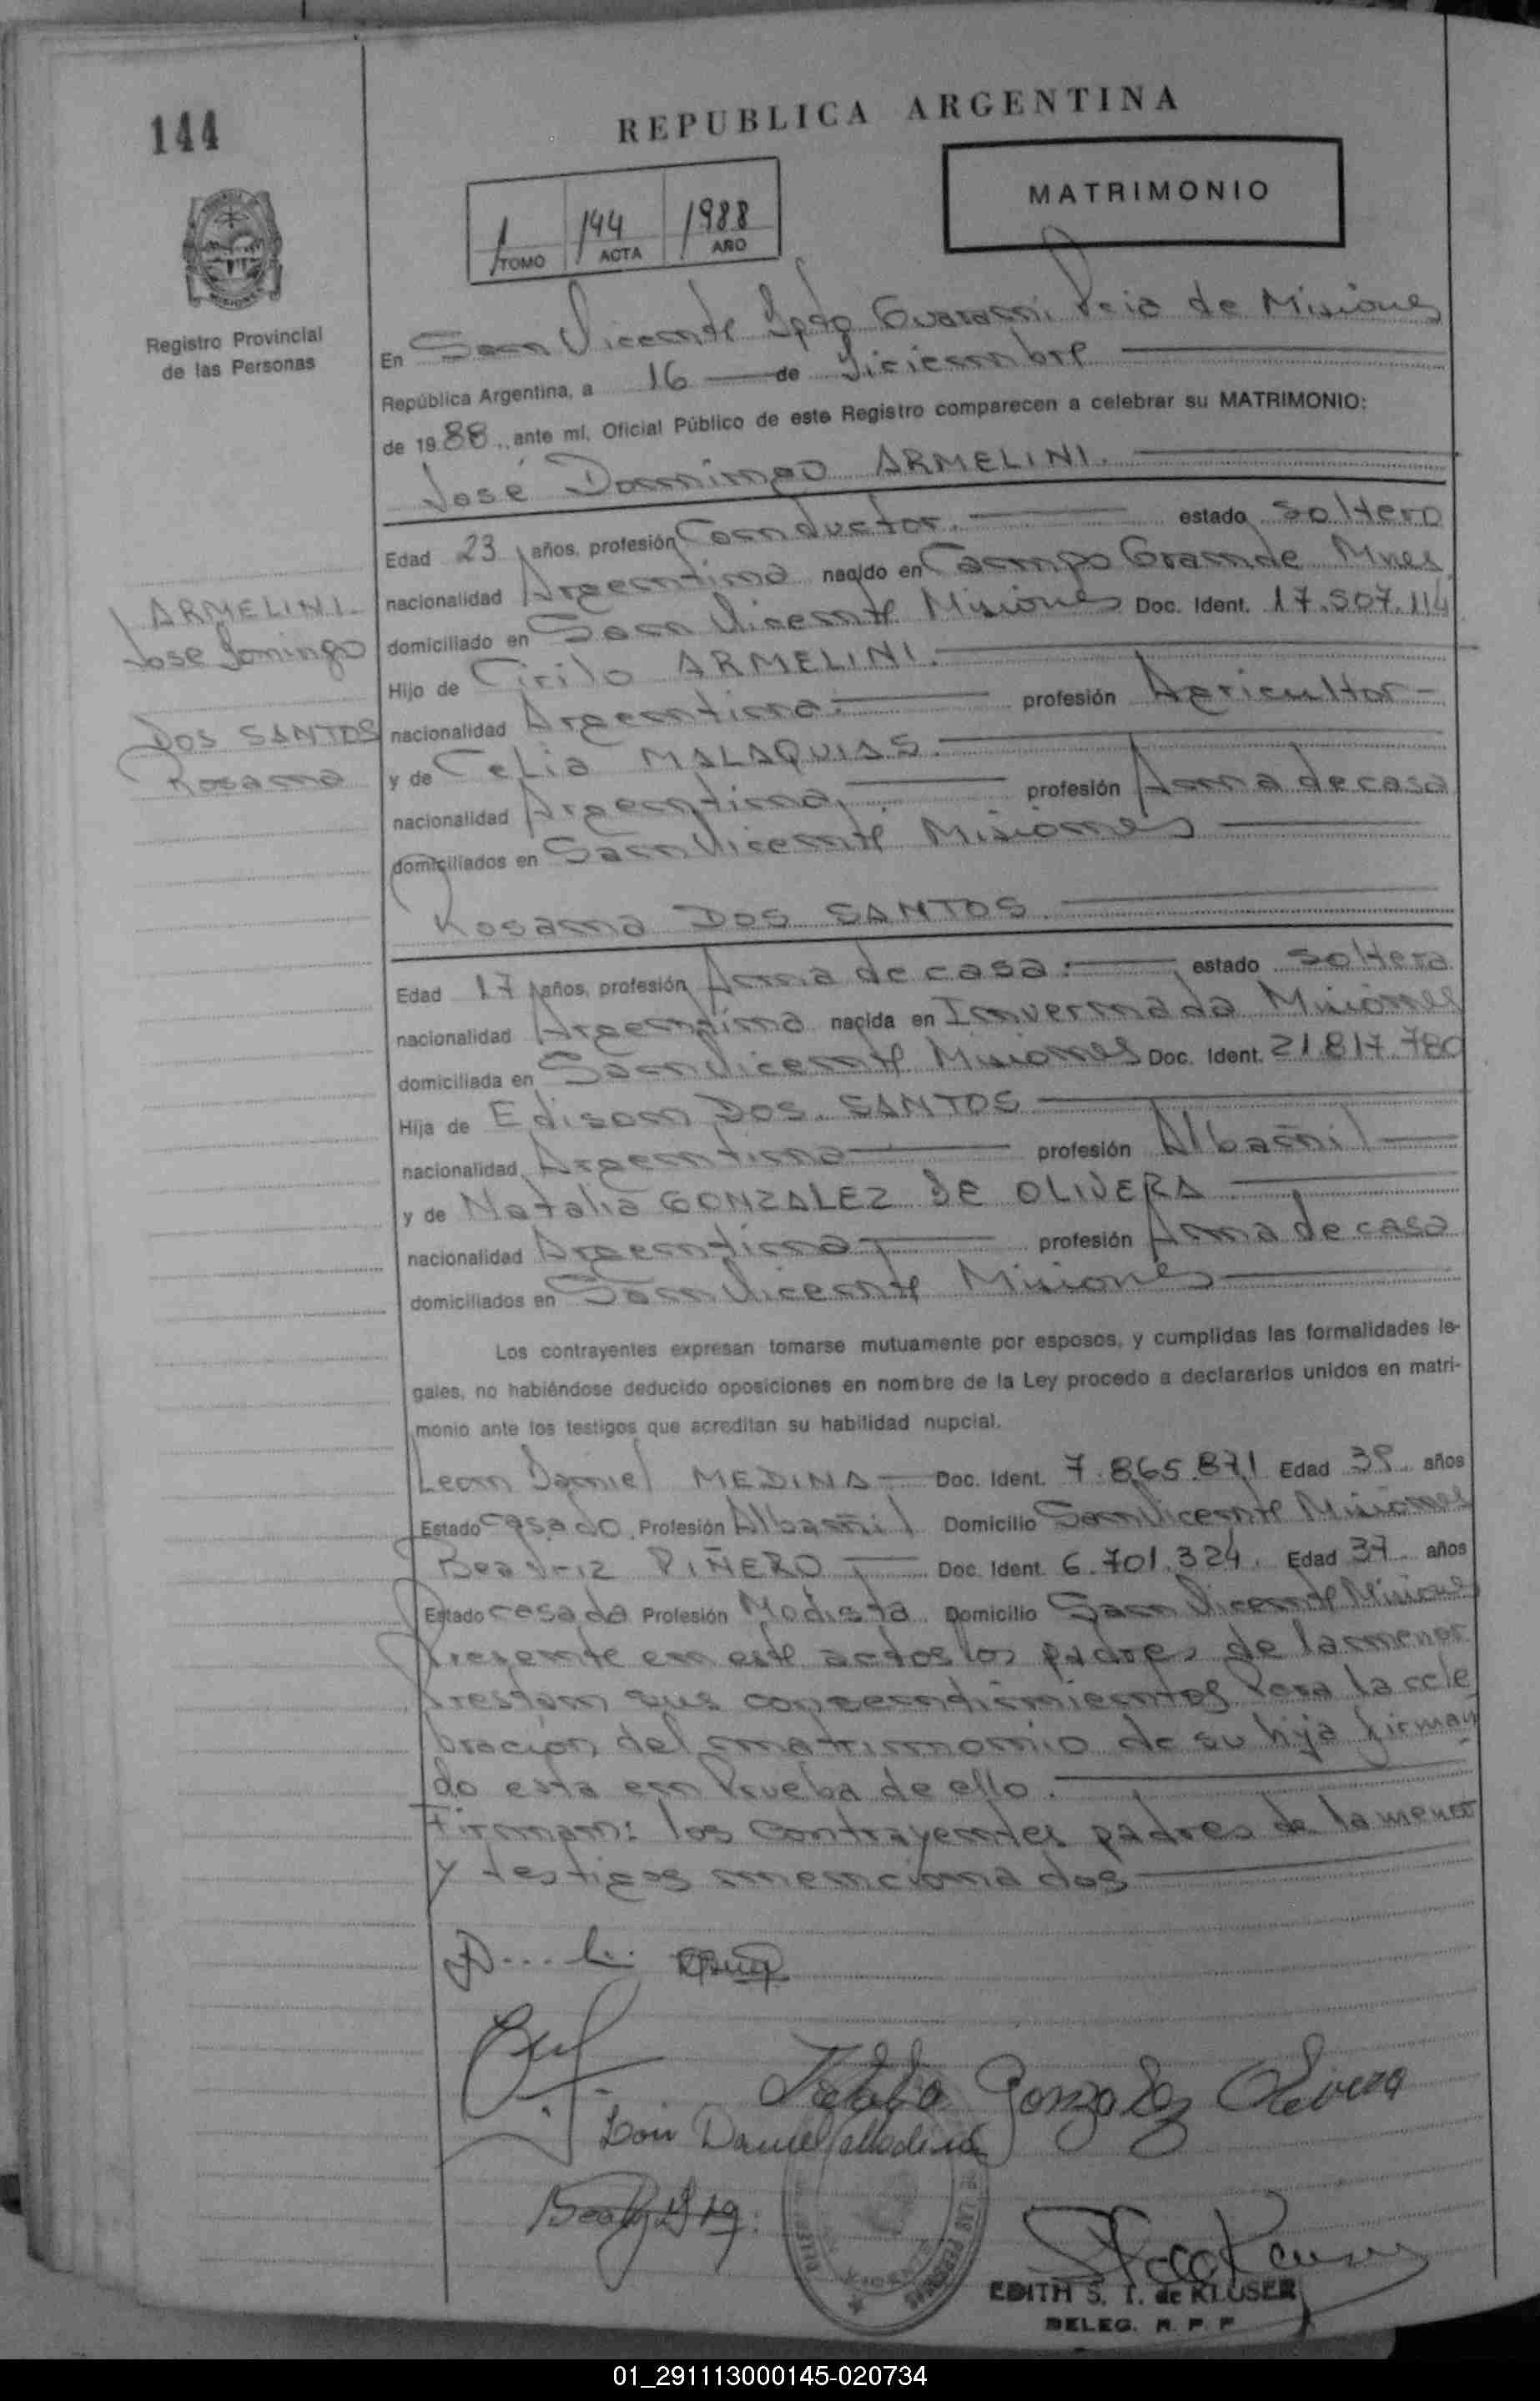 144
REPUBLICA ARGENTINA
MATRIMONIO
1 144 1988
TOMO ACTA AÑO
Registro Provincial
de las Personas
En San Vicente Dpto Guaraní Pcia de Misiones
República Argentina, a 16 de Diciembre
de 1988, ante mí, Oficial Público de este Registro comparecen a celebrar su MATRIMONIO:
José Domingo ARMELINI.
Edad 23 años, profesión Conductor. estado soltero
nacionalidad Argentina nacido en Campo Grande Mnes
domiciliado en San Vicente Misiones Doc. Ident. 17.507.114
ARMELINI
Jose Domingo
Hijo de Cirilo ARMELINI.
nacionalidad Argentina. profesión Agricultor
DOS SANTOS
Rosana
y de Celia MALAQUIAS.
nacionalidad Argentina, profesión Ama de casa
domiciliados en San Vicente Misiones
Rosana DOS SANTOS.
Edad 17 años, profesión Ama de casa. estado soltera
nacionalidad Argentina nacida en Invernada Misiones
domiciliada en San Vicente Misiones Doc. Ident. 21.817.780
Hija de Edison DOS SANTOS
nacionalidad Argentina profesión Albañil
y de Natalia GONZALEZ DE OLIVERA
nacionalidad Argentina profesión Ama de casa
domiciliados en San Vicente Misiones
Los contrayentes expresan tomarse mutuamente por esposos, y cumplidas las formalidades le-
gales, no habiéndose deducido oposiciones en nombre de la Ley procedo a declararlos unidos en matri-
monio ante los testigos que acreditan su habilidad nupcial.
Leon Daniel MEDINA Doc. Ident. 7.865.871 Edad 39 años
Estado casado Profesión Albañil Domicilio San Vicente Misiones
Beatriz PIÑERO Doc. Ident. 6.701.324. Edad 37 años
Estado casada Profesión Modista Domicilio San Vicente Misiones
Presente en este actos los padres de la menor
Prestan sus consendimientos Para la cele
bración del matrimonio de su hija firman
do esta en Prueba de ello.
Firman: los contrayentes padres de la menor
y testigos mencionados
Natalia Gonzalez Olivera
León Daniel Medina
EDITH S. T. de KLUSER
DELEG. R. P. P.
01_291113000145-020734